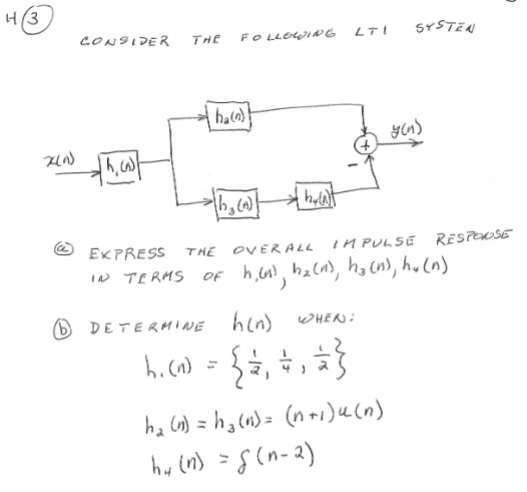 4 3
CONSIDER THE FOLLOWING LTI SYSTEM
h₂(n)
y(n)
x(n)
h₁(n)
+
−
h₃(n)
h₄(n)
(a) EXPRESS THE OVERALL IMPULSE RESPONSE
IN TERMS OF h₁(n), h₂(n), h₃(n), h₄(n)
(b) DETERMINE h(n) WHEN:
h₁(n) = {1/2, 1/4, 1/2}
h₂(n) = h₃(n) = (n+1)u(n)
h₄(n) = δ(n-2)